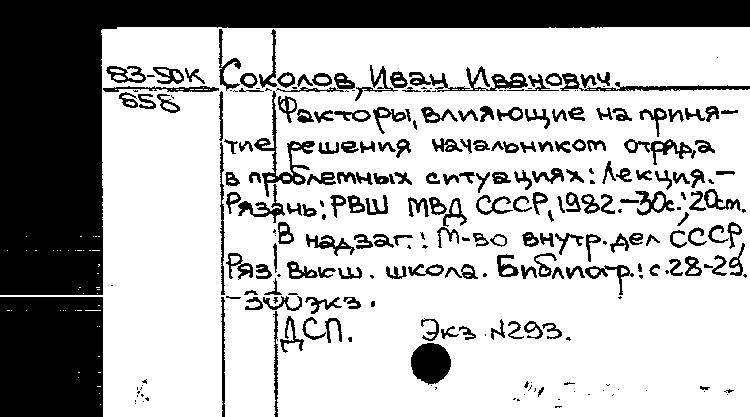 83-50К Соколов, Иван Иванович.
658
Факторы, влияющие на приня-
тие решения начальником отряда
в проблемных ситуациях: Лекция.-
Рязань: РВШ МВД СССР, 1982.-30с.; 20см.
В надзаг.: М-во внутр. дел СССР,
Ряз. высш. школа. Библиогр.: с.28-29.
-300экз.
ДСП. Экз N293.